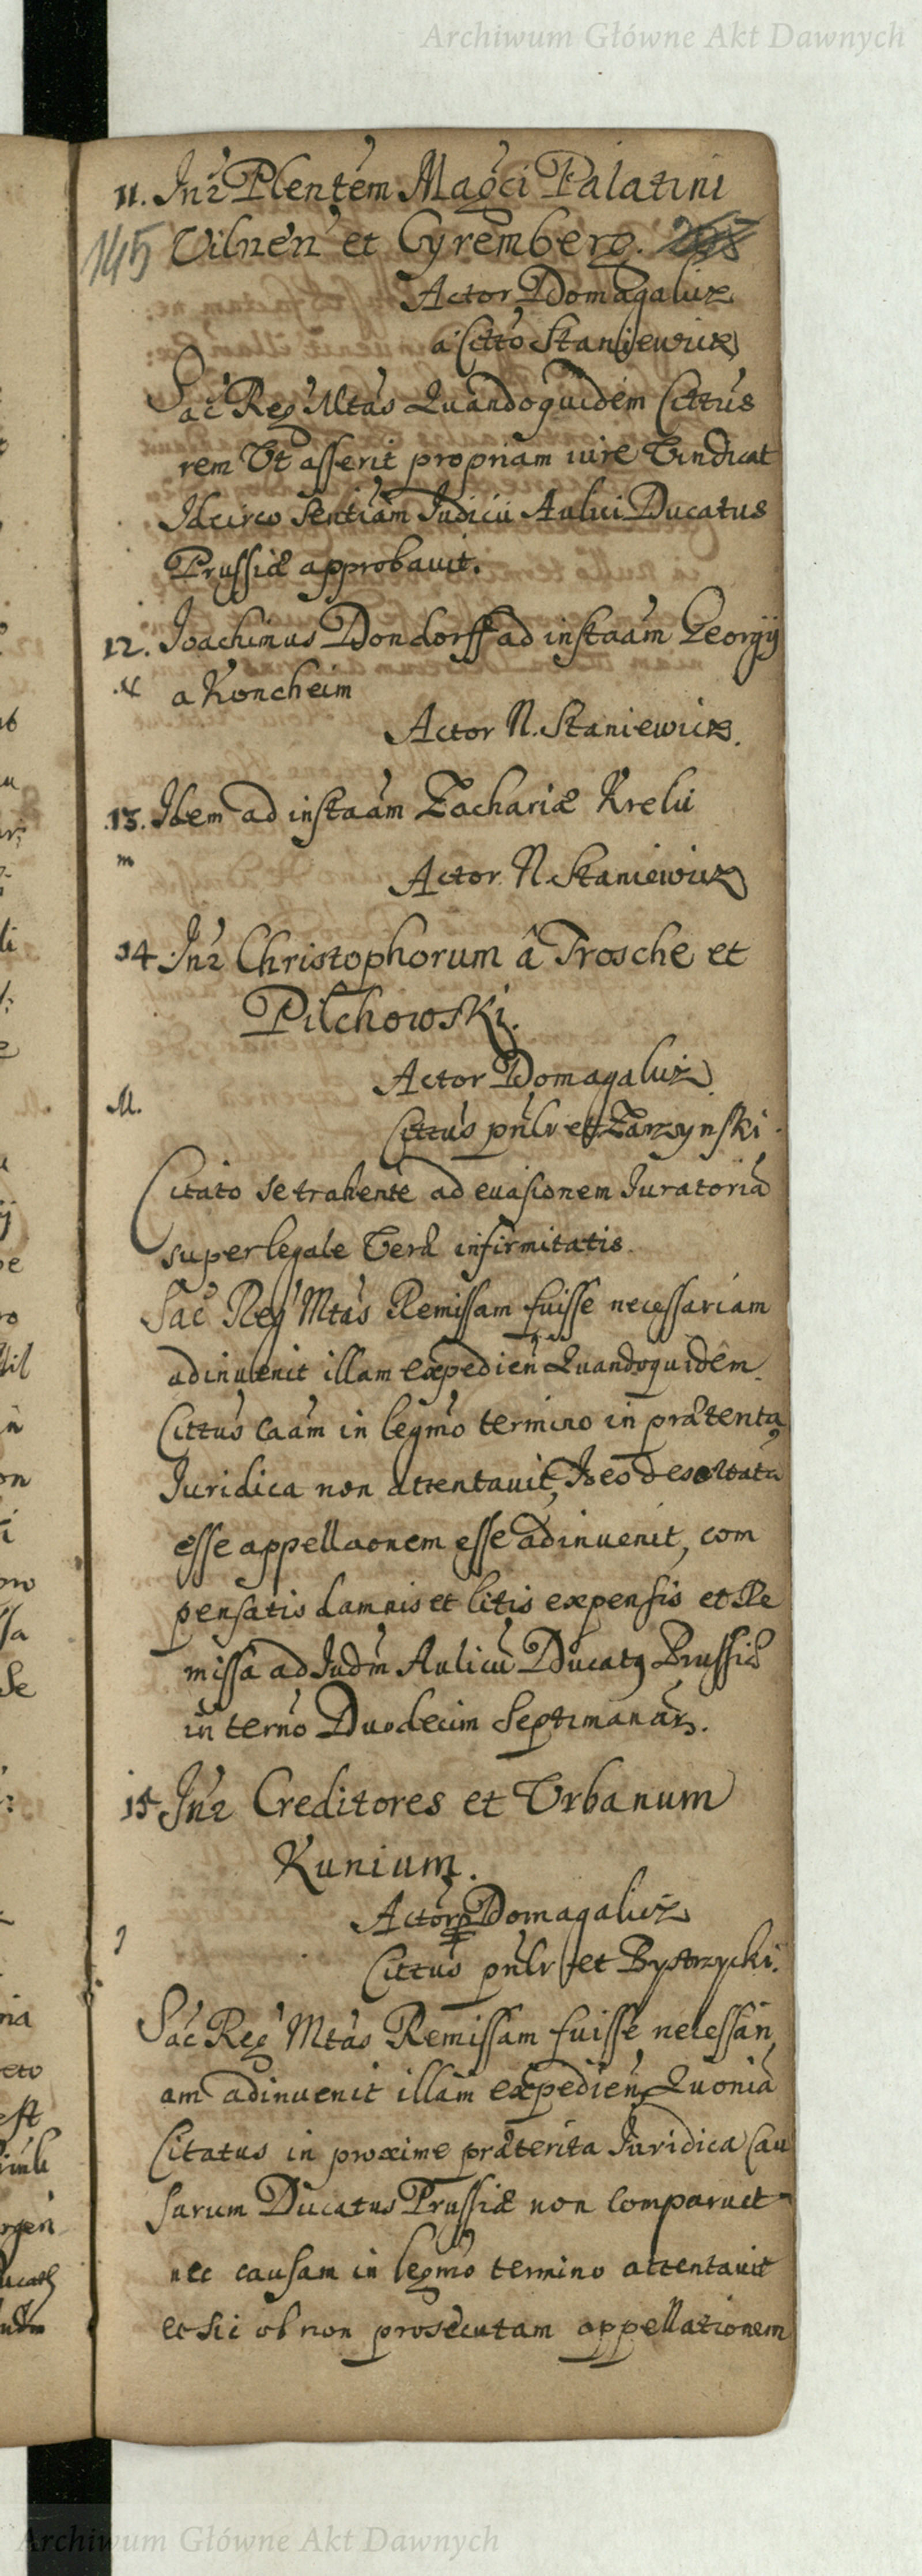 Archiwum Główne Akt Dawnych
11. Inr Plentem Magci Palatini
145 Vilnen et Gyremberg. 268
Actor Domagalicz
a Citto Staniewicz
Sac Reg Mtas Quandoquidem Cittus
rem Vt asserit propriam iure Vindicat
Idcirco Sentiam Iudicii Aulici Ducatus
Prussiæ approbauit.
12. Ioachimus Dondorff ad instaam Georgij
a Koncheim
Actor N. Staniewicz.
13. Idem ad instaam Zachariæ Krelii
m
Actor N. Staniewicz
14. Inr Christophorum â Trosche et
Pilchowski.
Actor Domagalicz
M.
Cittus pnlr et Zarzynski.
Citato se trahente ad euasionem Iuratoria
super legale Veræ infirmitatis.
Sac Reg Mtas Remissam fuisse necessariam
adinuenit illam expedien Quandoquidem
Cittus caam in legmo termino in prætenta
Iuridica non attentauit, Ideo
esse appellaonem esse adinuenit, com
pensatis damnis et litis expensis et Re
missa ad Iudm Aulicu Ducatq Prussiæ
in terno Duodecim Septimanar.
15 Inr Creditores et Vrbanum
Kunium.
Actor Domagalicz
Cittus pnlr et Bystrzycki.
Sac Reg Mtas Remissam fuisse necessari
am adinuenit illam expedien, Quonia
Citatus in proxime præterita Iuridica Cau
sarum Ducatus Prussiæ non comparuit
nec causam in legmo termino attentauit
et sic ob non prosecutam appellationem
Archiwum Główne Akt Dawnych